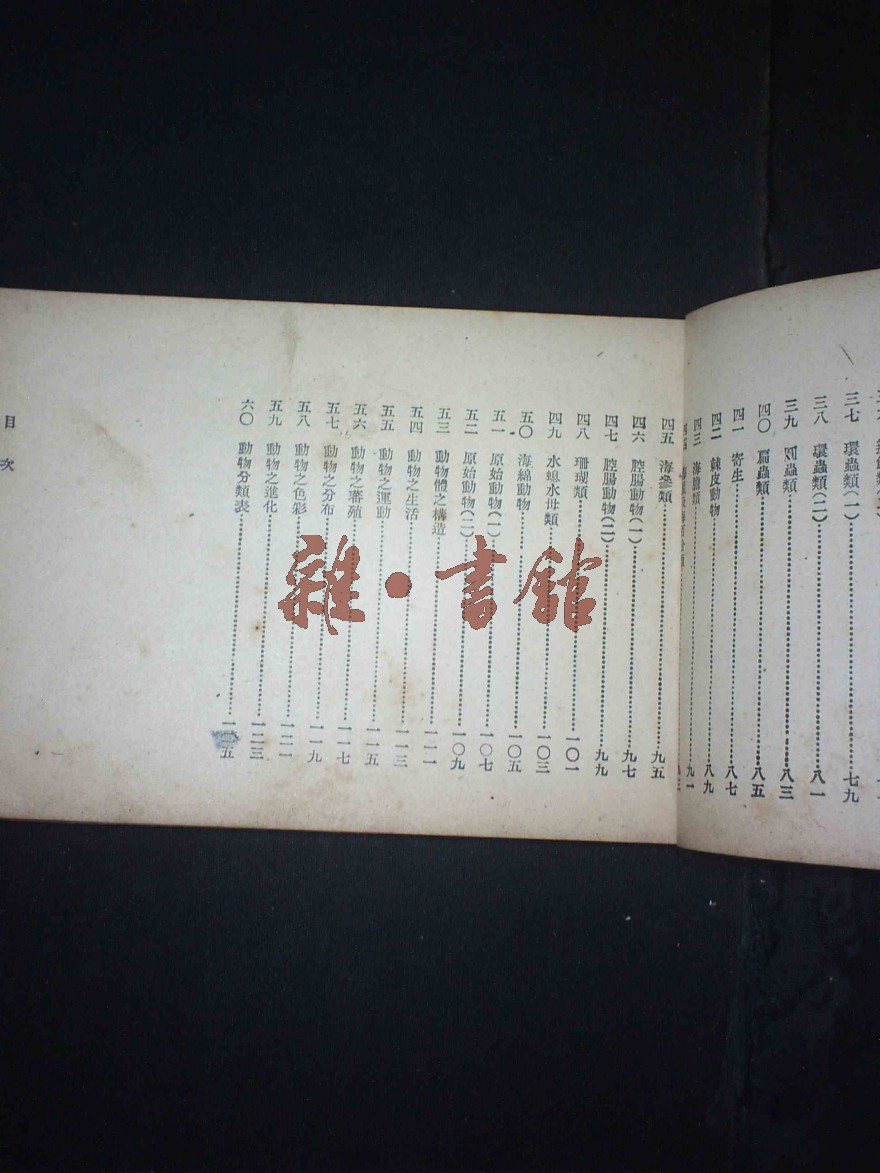 三七 環蟲類(一)…七九
三八 環蟲類(二)…八一
三九 圓蟲類…八三
四〇 扁蟲類…八五
四一 寄生…八七
四二 棘皮動物…八九
四三 海膽類…九一
四五 海參類…九五
四六 腔腸動物(一)…九七
四七 腔腸動物(二)…九九
四八 珊瑚類…一〇一
四九 水螅水母類…一〇三
五〇 海綿動物…一〇五
五一 原始動物(一)…一〇七
五二 原始動物(二)…一〇九
五三 動物體之構造…一一一
五四 動物之生活…一一三
五五 動物之運動…一一五
五六 動物之蕃殖…一一七
五七 動物之分布…一一九
五八 動物之色彩…一二一
五九 動物之進化…一二三
六〇 動物分類表…一二五
目次
一
雜·書館